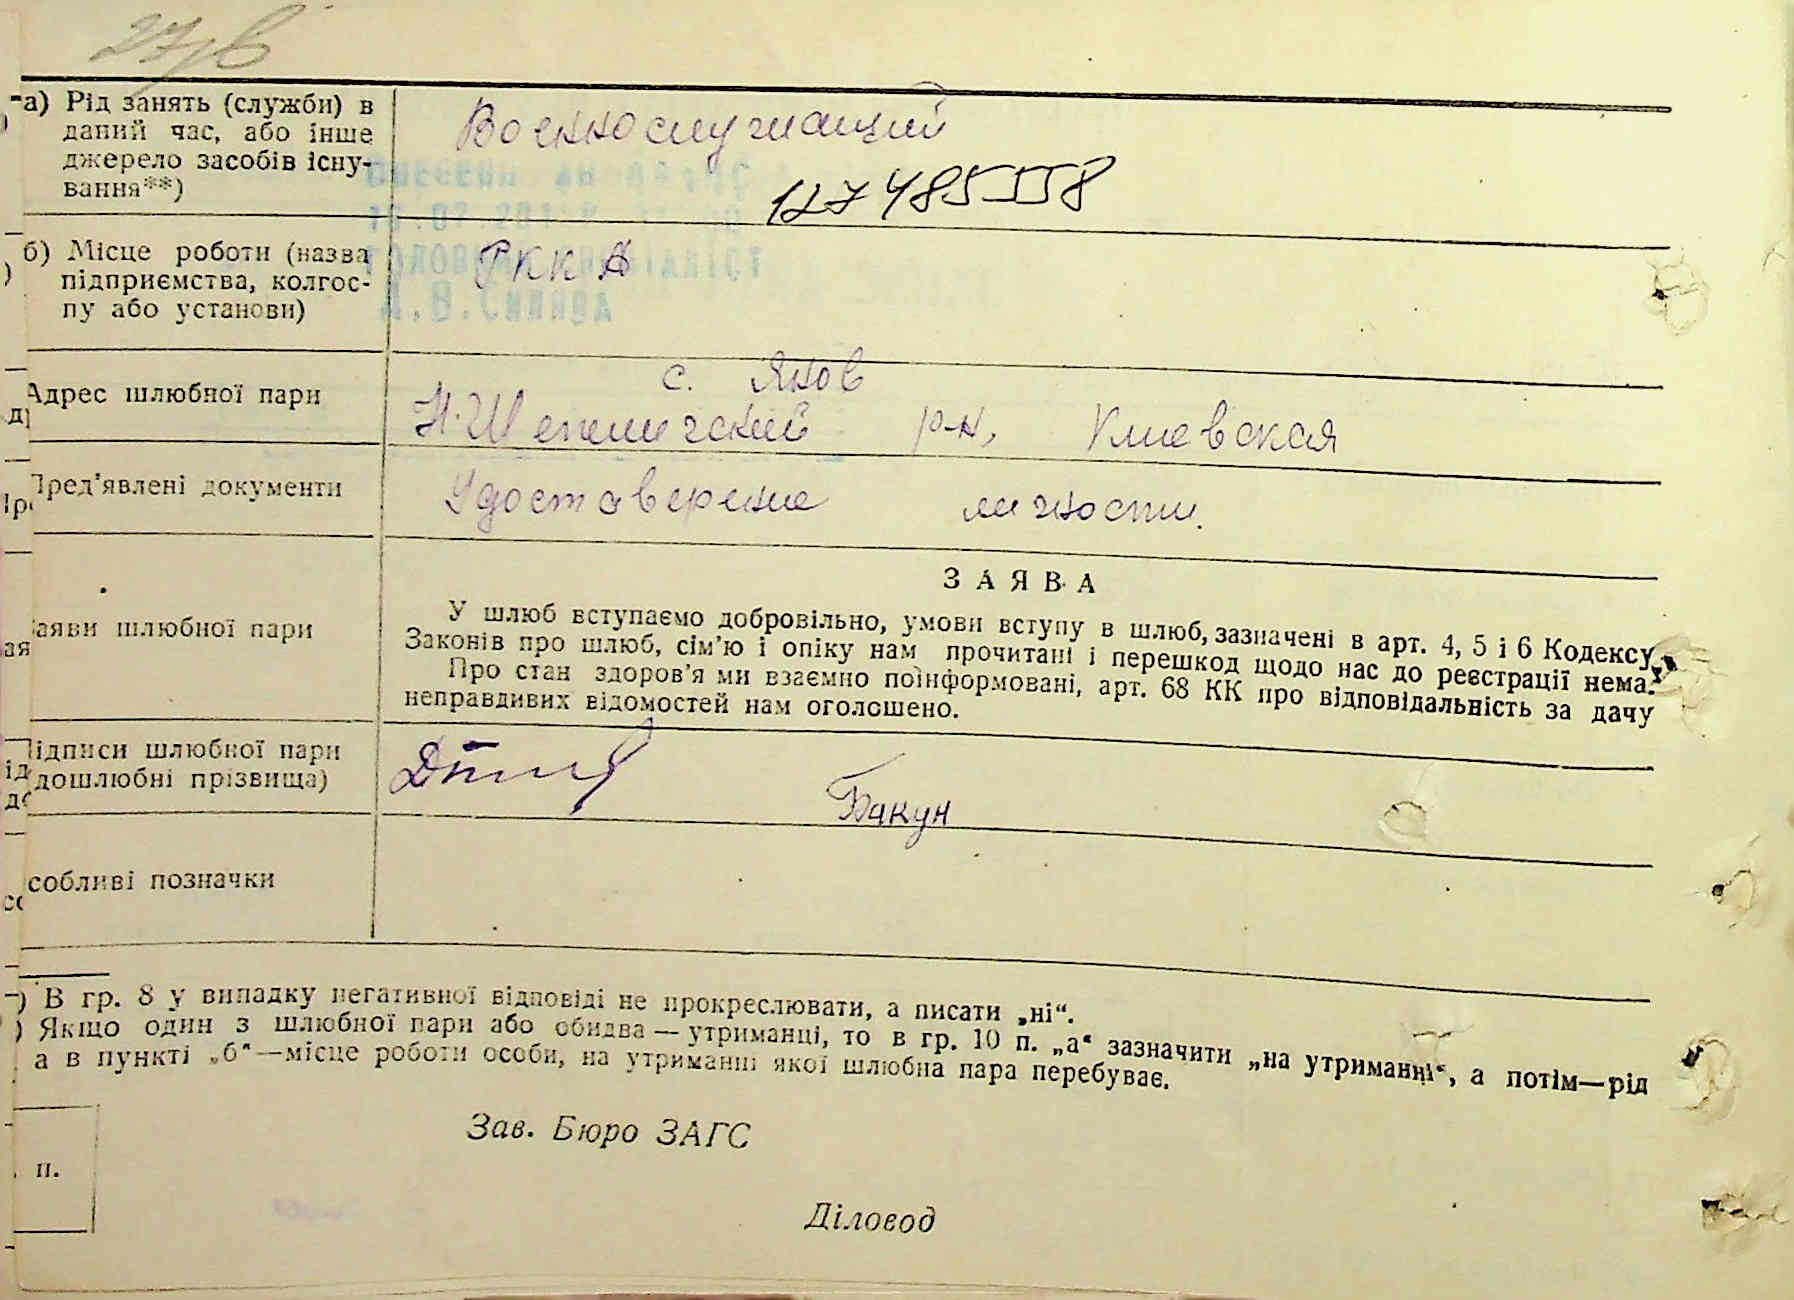 27зв
а) Рід занять (служби) в
даний час, або інше
джерело засобів існу-
вання**)
Военнослужащий
127485
б) Місце роботи (назва
підприємства, колгос-
пу або установи)
РККА
ГОЛОВНИЙ СПЕЦІАЛІСТ
Адрес шлюбної пари
с. Янов
Н-Шепеличский р-н, Киевская
Пред'явлені документи
Удостоверение личности.
Заяви шлюбної пари
ЗАЯВА
У шлюб вступаємо добровільно, умови вступу в шлюб, зазначені в арт. 4, 5 і 6 Кодексу
Законів про шлюб, сім'ю і опіку нам прочитані і перешкод щодо нас до реєстрації нема.
Про стан здоров'я ми взаємно поінформовані, арт. 68 КК про відповідальність за дачу
неправдивих відомостей нам оголошено.
Підписи шлюбної пари
(дошлюбні прізвища)
Бакун
собливі позначки
) В гр. 8 у випадку негативної відповіді не прокреслювати, а писати „ні“.
) Якщо один з шлюбної пари або обидва — утриманці, то в гр. 10 п. „а“ зазначити „на утриманні“, а потім—рід
а в пункті „б“—місце роботи особи, на утриманні якої шлюбна пара перебуває.
Зав. Бюро ЗАГС
п.
Діловод